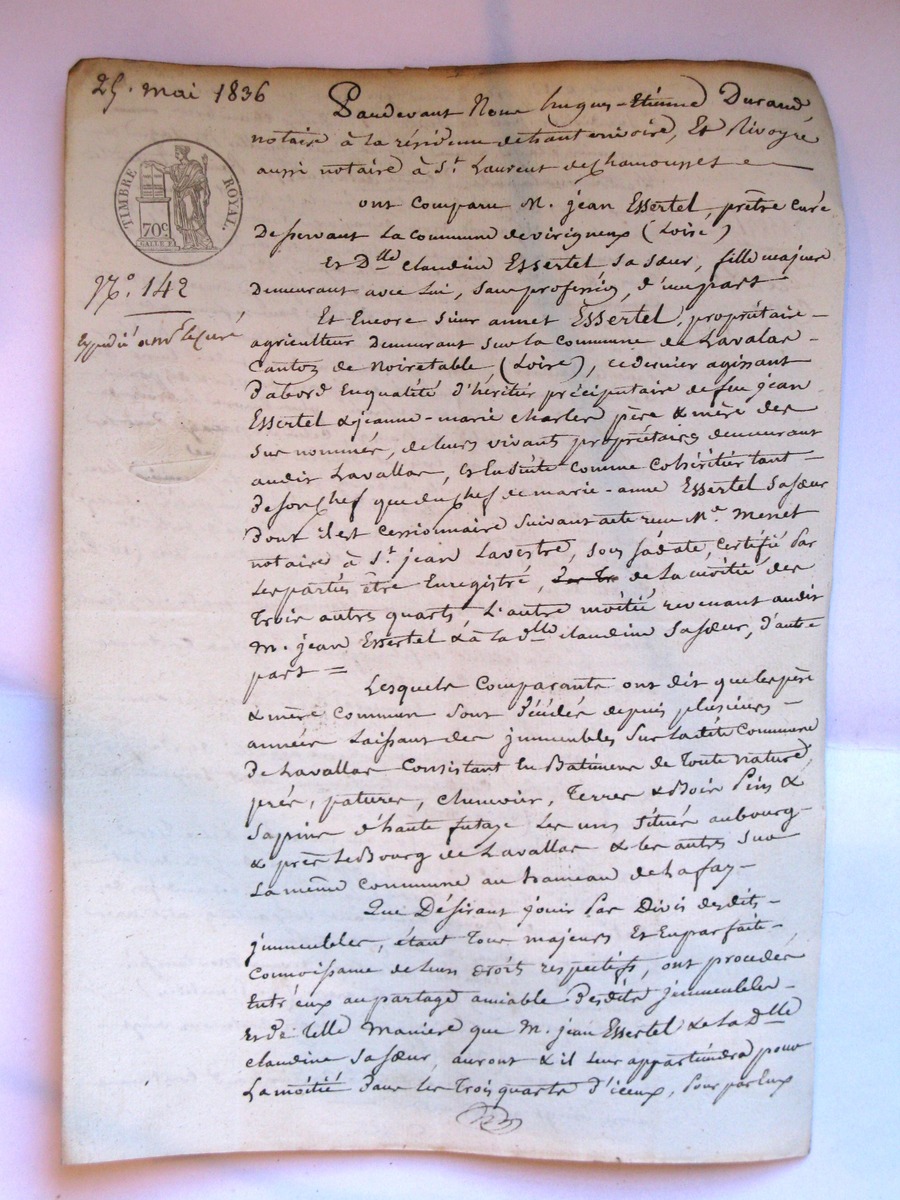 25. mai 1836
TIMBRE ROYAL.
70c
N.° 142
Expédié a mr le curé
Pardevant Nous hugues-Etienne Durand
notaire à la résidence de haut en rivoire, Et Rivoyre
aussi notaire à St. Laurent de Chamousset
ont Comparu M. jean Essertel, prêtre curé
Desservant La commune de virigneux (Loire)
Et Dlle claudine Essertel Sa Sœur, fille majeure
Demeurant avec Lui, Sans profession, d'une part
Et Encore Sieur annet Essertel, propriétaire-
agriculteur Demeurant Sur La Commune de Lavallas-
Canton de Noiretable, (Loire), ce dernier agissant
D'abord En qualité d'héritier précipitaire de feu jean
Essertel & jeanne-marie charles père & mère des
Sus nommés, de leurs vivants propriétaires demeurant
audit Lavallas, Et Ensuite comme Cohéritier tant-
De Son Chef que du Chef de marie-anne Essertel Sa Sœur
Dont il est cessionnaire Suivant acte reçu Me. Menet
notaire à St. jean Lavestre, Sous Sa date, certifié par
Les parties être Enregistré, de La moitié des
Trois autres quarts L'autre moitié revenant audit
M. jean Essertel & à la Dlle claudine Sa Sœur, d'autre
part =
Lesquels Comparants ont dit que les père
& mère commun Sont Décédés depuis plusieurs-
années Laissant des jmmeubles Sur Ladite Commune
De Lavallas Consistant En Batimens de Toute nature,
prés, patures, chenevier, Terres & Bois Pins &
Sapins d'haute futaye Les uns Situés au bourg-
& près Le Bourg de Lavallas & les autres Sur
La même Commune au hameau de Lafay-
Que Désirant jouir Par Divis desdits-
jmmeubles, étant Tous majeurs Et En parfaite-
Connoissance de Leurs droits respectifs, ont procédés
Entr'eux au partage amiable Desdits jmmeubles-
Et De Telle Maniere que M. jean Essertel & La Dlle
claudine Sa Sœur, auront & il Leur appartiendra pour
La moitié Dans Les Trois quarts d'iceux, Pour par Eux